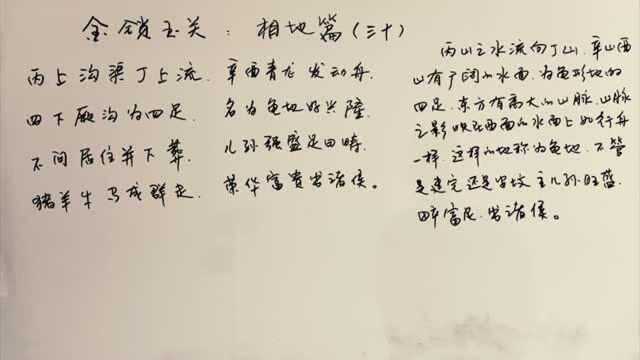 金锁玉关：相地篇（三十）
丙上沟渠丁上流
四下厥沟为四足
不问居住并下葬
猪羊牛马成群走
辛酉青龙发动舟
名为龟地好兴隆
儿孙强盛足田畴
荣华富贵出诸侯。
丙山之水流向丁山，辛山酉
山有广阔的水面，为龟形地的
四足，东方有高大的山脉，山脉
之影映在西面的水面上如行舟
一样，这样的地称为龟地，不管
是建宅还是安坟，主儿孙旺盛，
田丰富足，出诸侯。